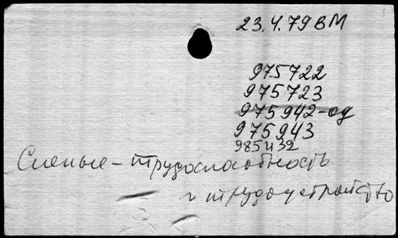 23.4.79 ВМ
975722
975723
975942-од
975943
985432
Слепые - трудоспособность
и трудоустройство